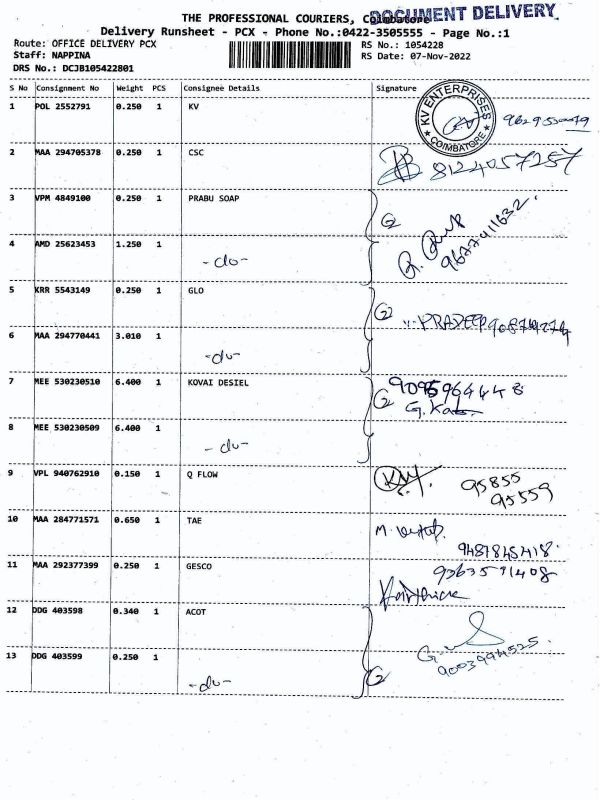 THE PROFESSIONAL COURIERS, Coimbatore
DOCUMENT DELIVERY
Delivery Runsheet - PCX - Phone No.:0422-3505555 - Page No.:1
Route: OFFICE DELIVERY PCX
RS No.: 1054228
Staff: NAPPINA
RS Date: 07-Nov-2022
DRS No.: DCJB105422801
S No Consignment No Weight PCS Consignee Details Signature
1 POL 2552791 0.250 1 KV
KV ENTERPRISES
COIMBATORE
2 MAA 294705378 0.250 1 CSC 8124057257
3 VPM 4849100 0.250 1 PRABU SOAP
9677411632
4 AMD 25623453 1.250 1 -do-
5 KRR 5543149 0.250 1 GLO
PRADEEP
6 MAA 294770441 3.010 1 -do-
7 MEE 530230510 6.400 1 KOVAI DESIEL
8 MEE 530230509 6.400 1 -do-
9 VPL 940762910 0.150 1 Q FLOW
95855
95559
10 MAA 284771571 0.650 1 TAE
11 MAA 292377399 0.250 1 GESCO
12 DDG 403598 0.340 1 ACOT
9003994525
13 DDG 403599 0.250 1 -do-